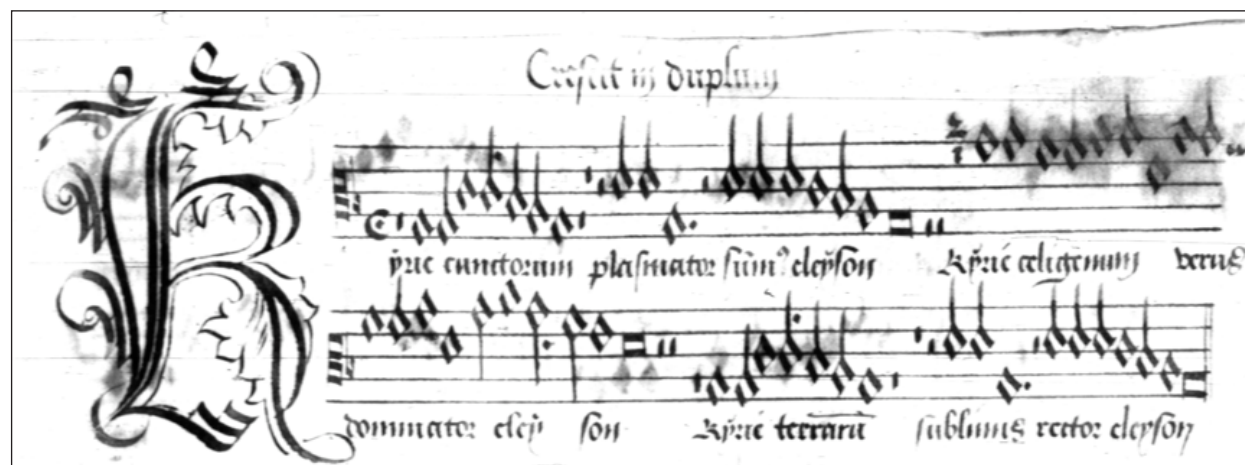 Crescit in duplum
K
yrie cunctorum plasmator sum⁹ eleyson Kyrie celigenum verus
dominator eley son Kyrie terrarū sublimis rector eleyson